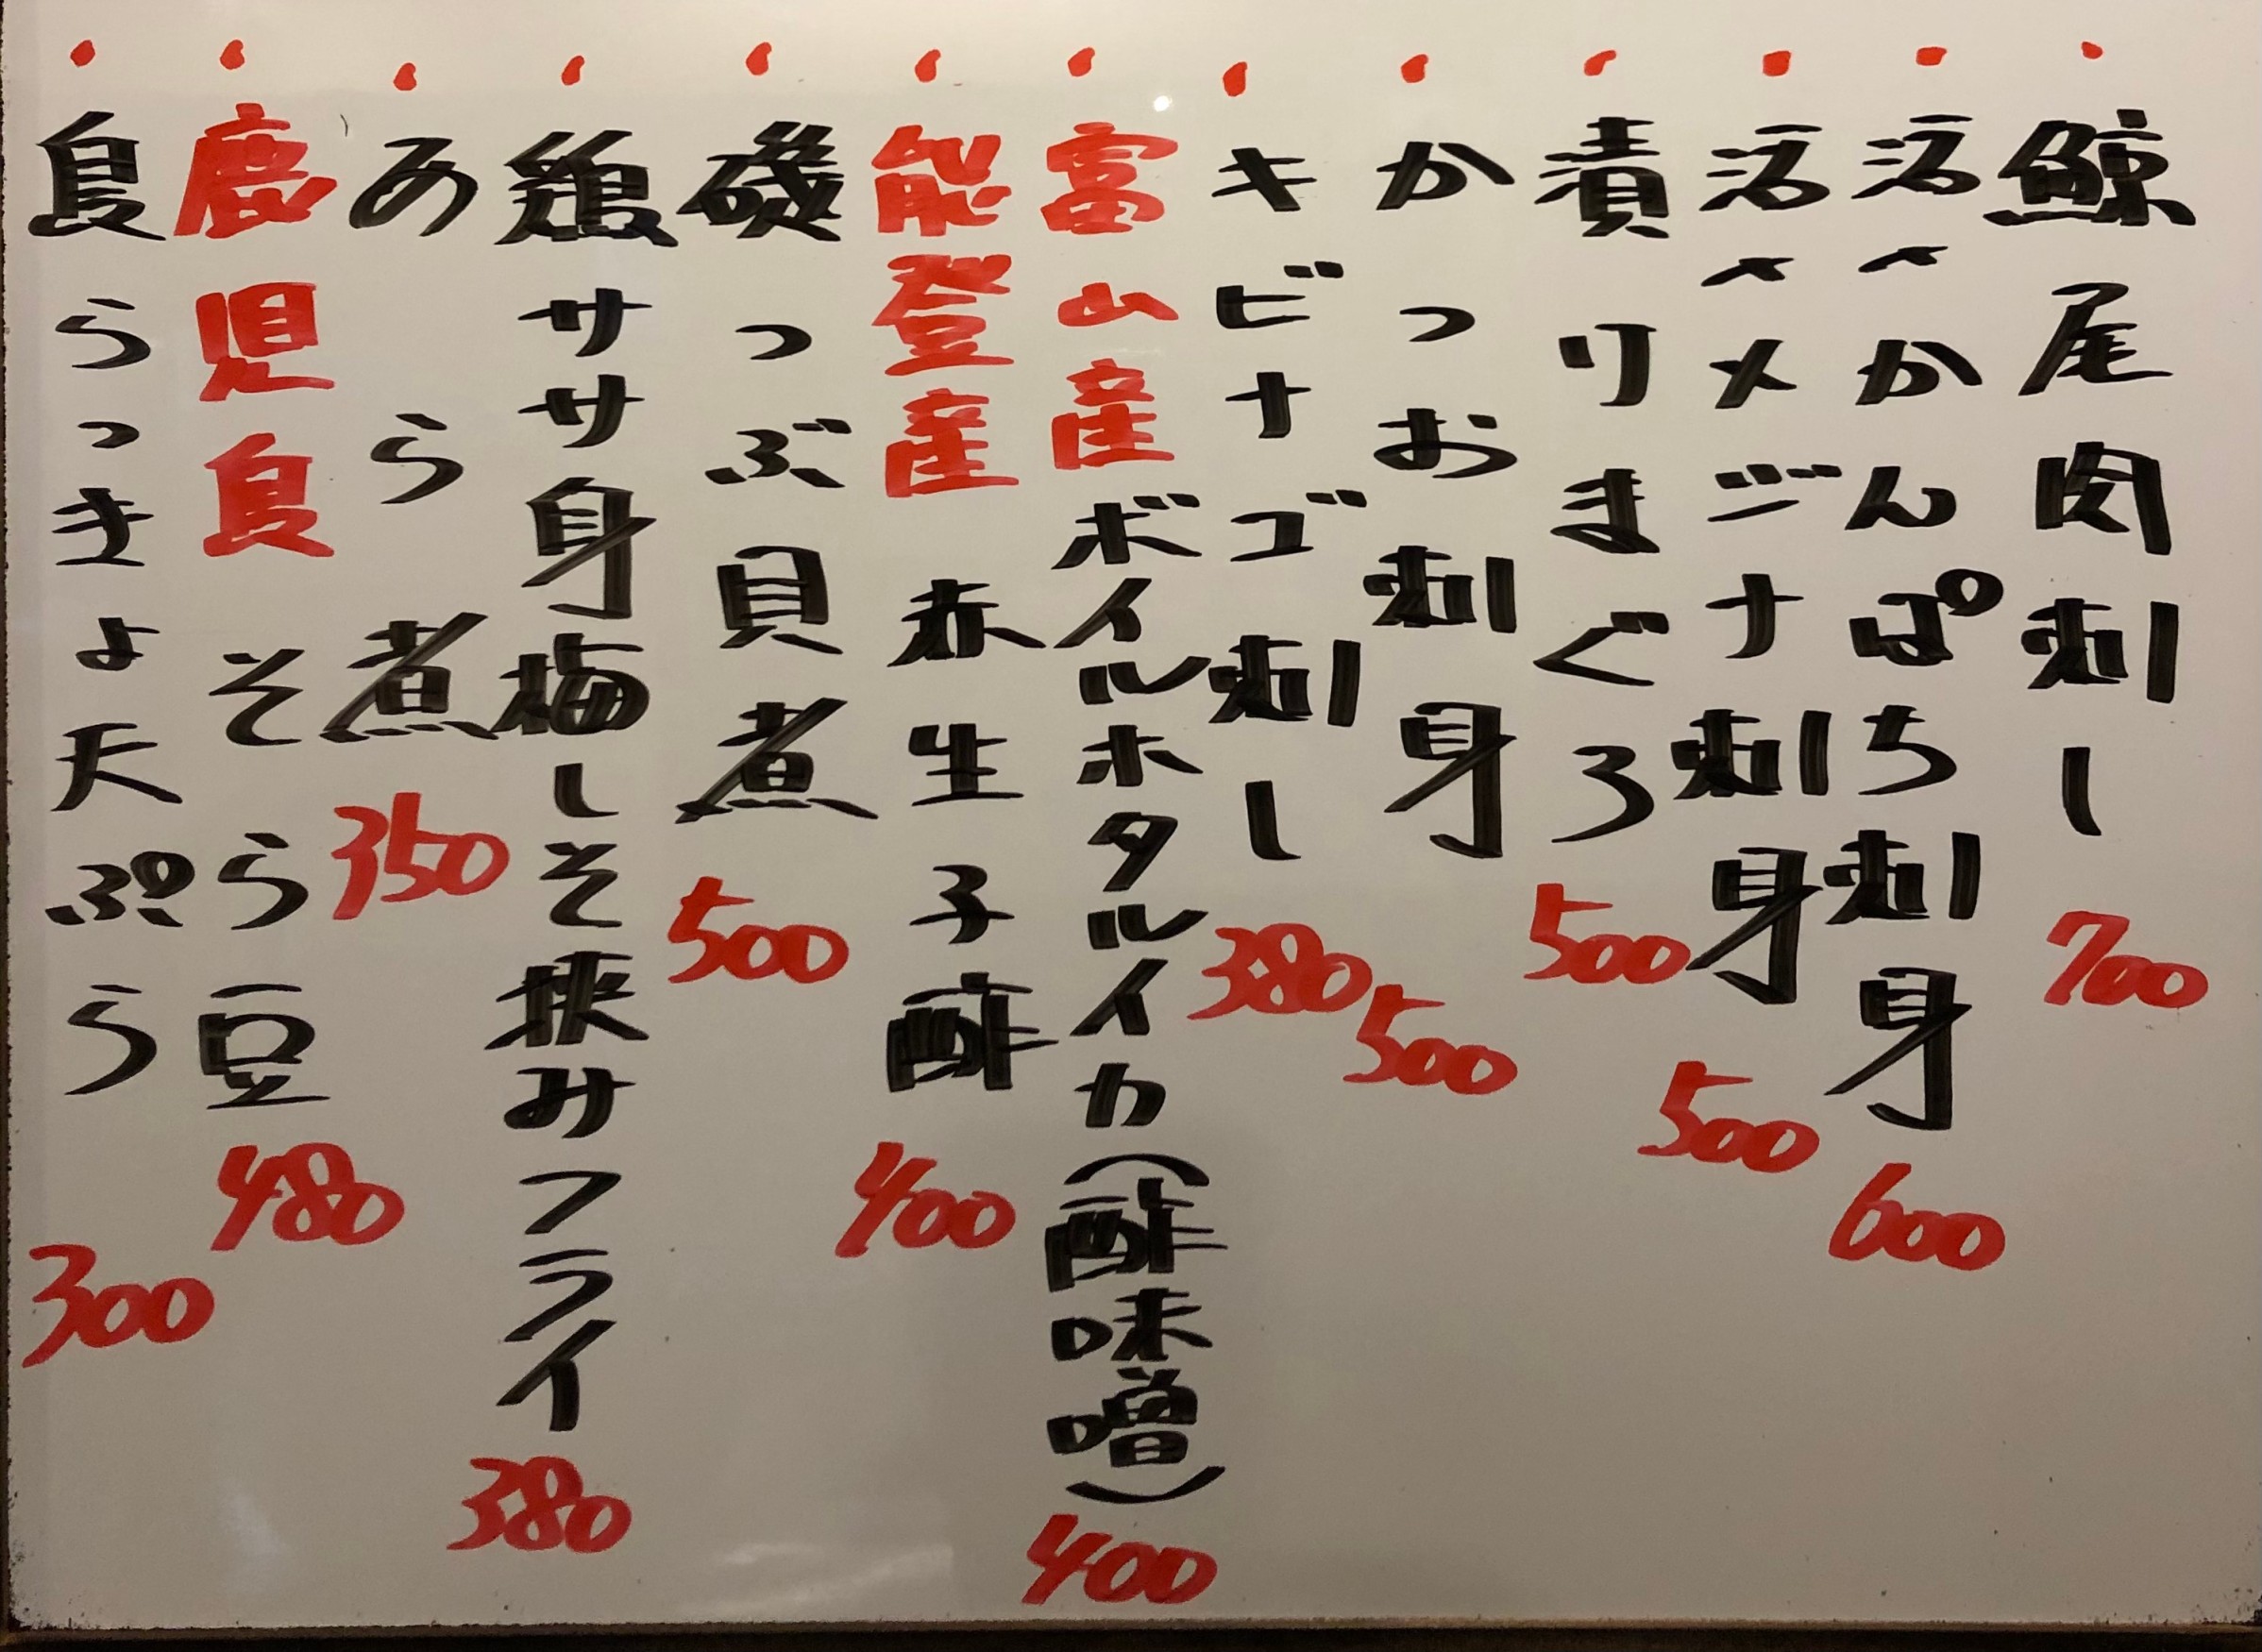 ・鯨尾肉刺し 700
・活〆かんぱち刺身 600
・活〆メジナ刺身 500
・漬りまぐろ 500
・かつお刺身 500
・キビナゴ刺し 380
・富山産ボイルホタルイカ(酢味噌) 400
・能登産赤生子酢 400
・磯つぶ貝煮 500
・鶏ササ身梅しそ挟みフライ 380
・あら煮 350
・鹿児島そら豆 480
・島らっきょ天ぷら 300